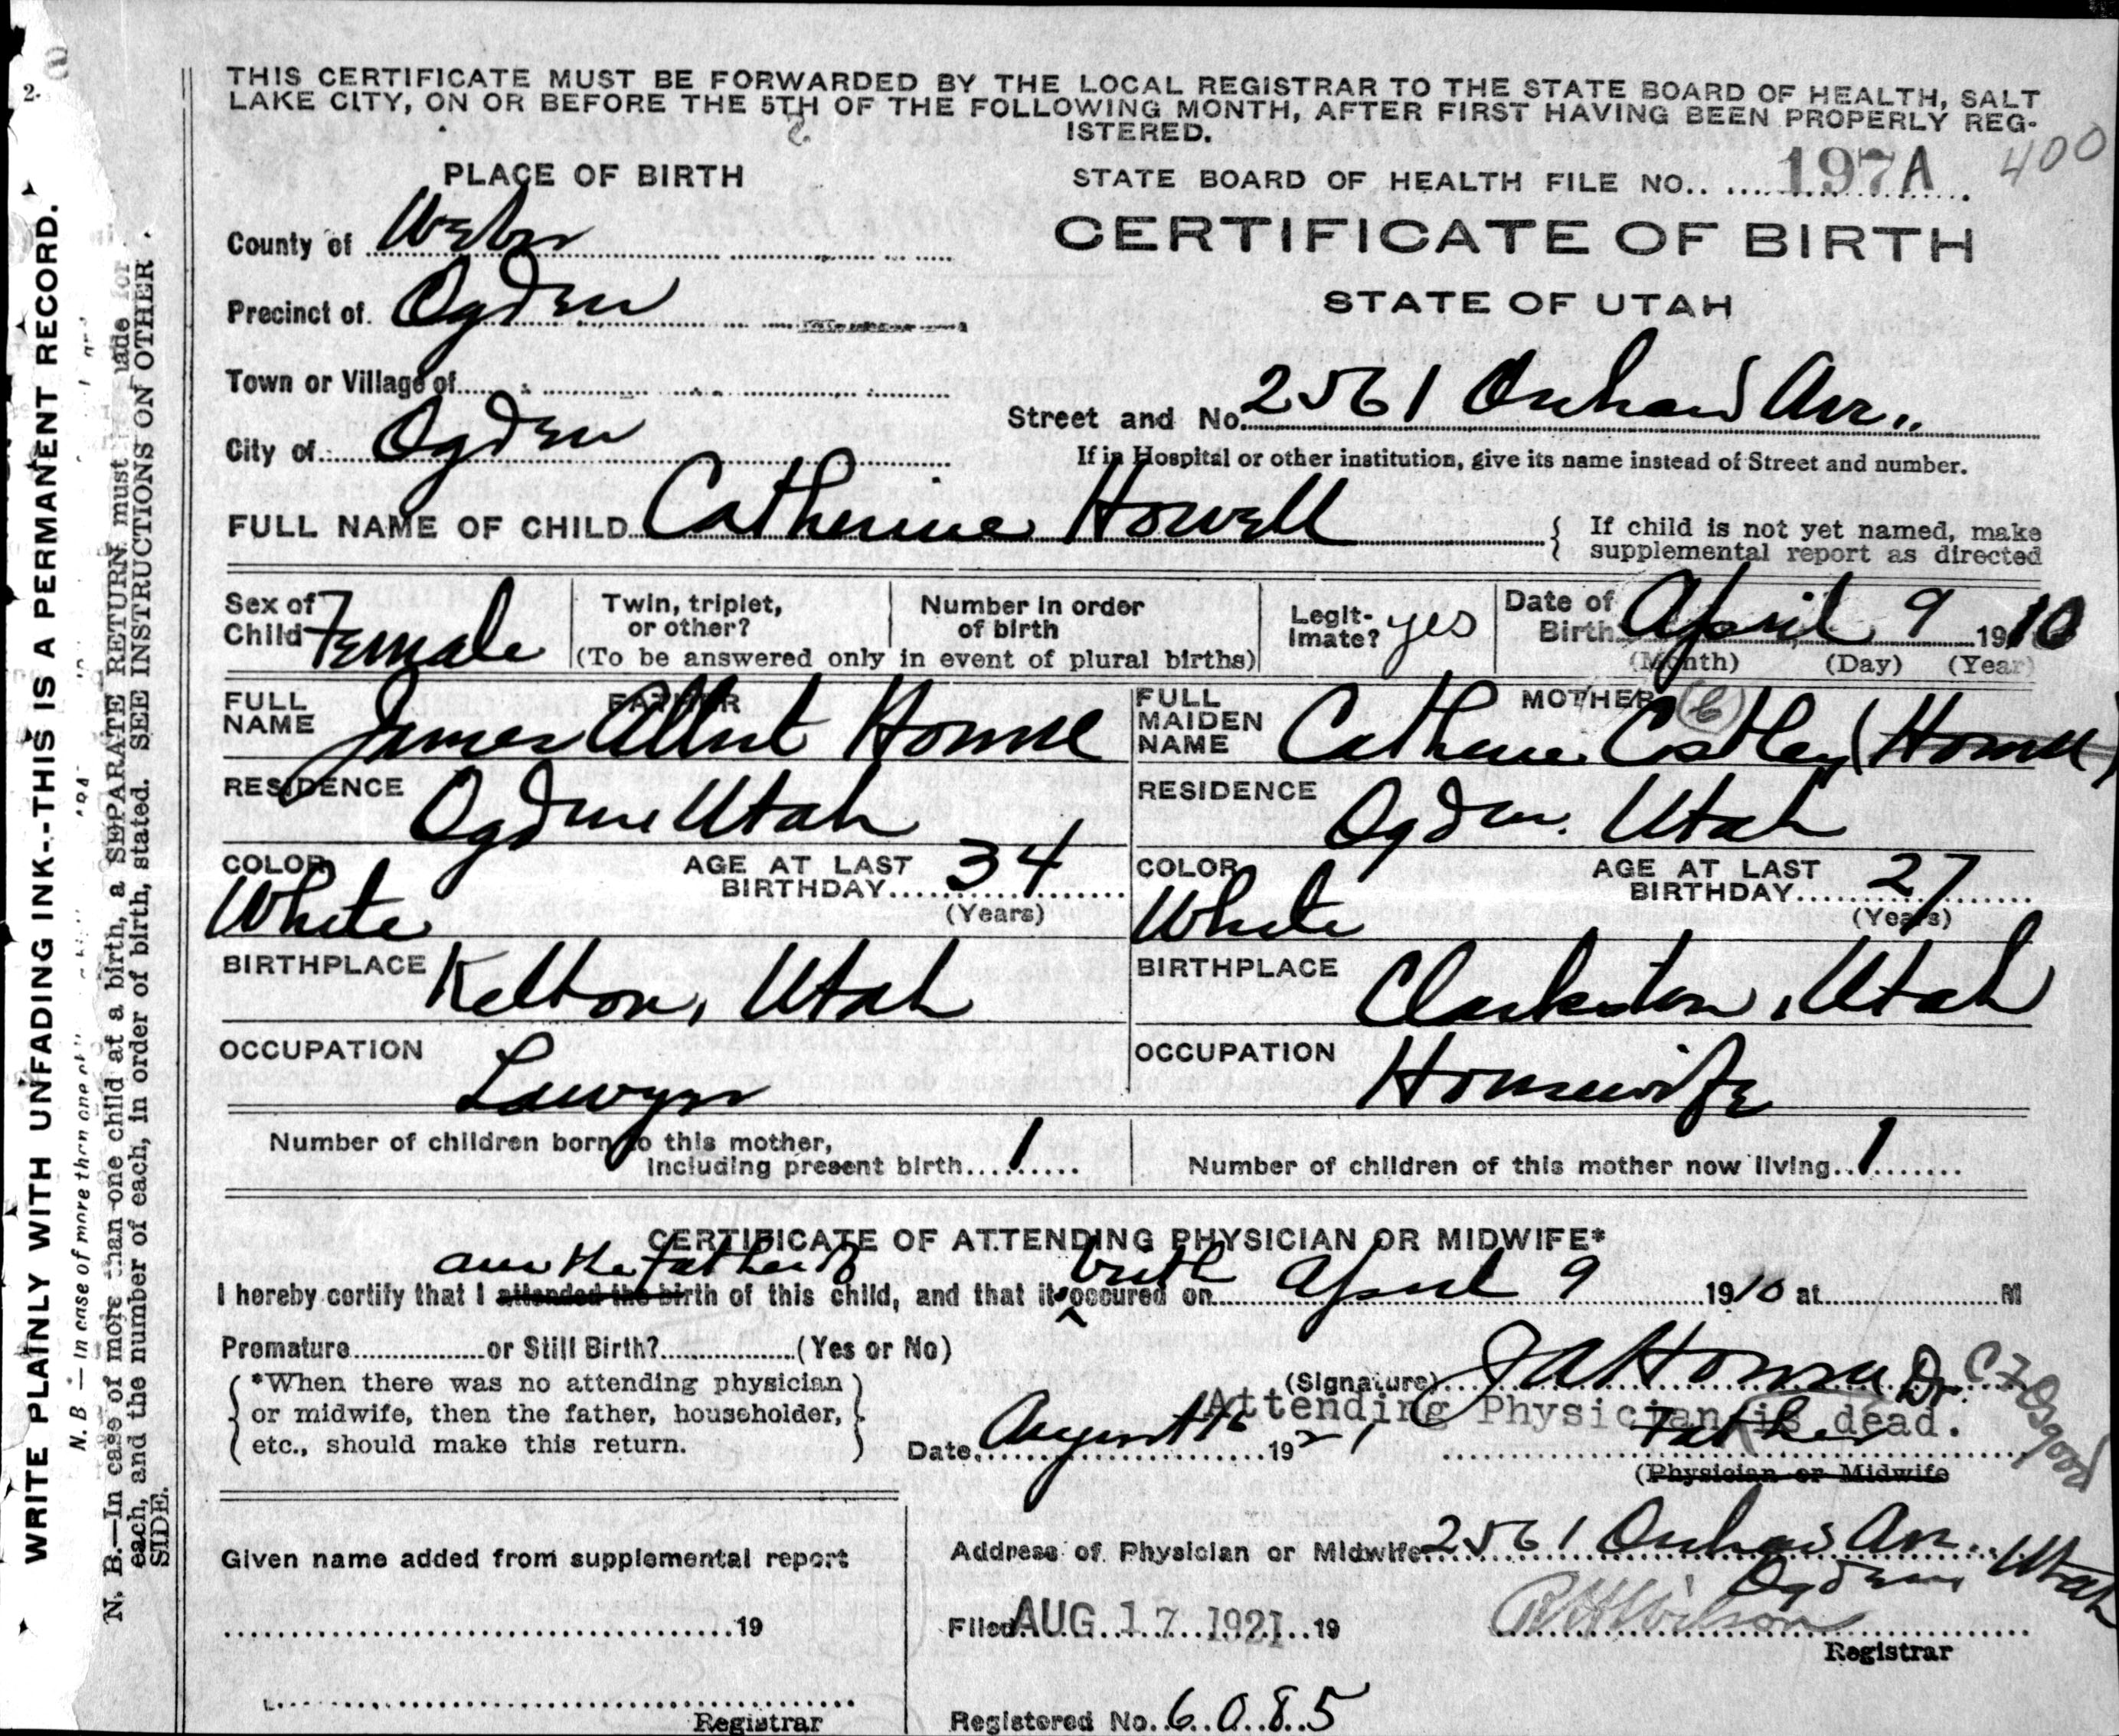 THIS CERTIFICATE MUST BE FORWARDED BY THE LOCAL REGISTRAR TO THE STATE BOARD OF HEALTH, SALT
LAKE CITY, ON OR BEFORE THE 5TH OF THE FOLLOWING MONTH, AFTER FIRST HAVING BEEN PROPERLY REG-
ISTERED.
PLACE OF BIRTH
STATE BOARD OF HEALTH FILE NO. 197A 400
CERTIFICATE OF BIRTH
STATE OF UTAH
County of Weber
Precinct of Ogden
Town or Village of
City of Ogden
Street and No. 2561 Orchard Ave.
If in Hospital or other institution, give its name instead of Street and number.
FULL NAME OF CHILD Catherine Howell
{ If child is not yet named, make
supplemental report as directed
Sex of Child Female
Twin, triplet, or other?
Number in order of birth
(To be answered only in event of plural births)
Legit-imate? yes
Date of Birth April 9 1910
(Month) (Day) (Year)
FATHER
FULL NAME James Albert Howell
RESIDENCE Ogden Utah
COLOR White
AGE AT LAST BIRTHDAY 34
(Years)
BIRTHPLACE Kelton, Utah
OCCUPATION Lawyer
MOTHER
FULL MAIDEN NAME Catherine Costley (Howell)
RESIDENCE Ogden. Utah
COLOR White
AGE AT LAST BIRTHDAY 27
(Years)
BIRTHPLACE Clarkston, Utah
OCCUPATION Housewife
Number of children born to this mother,
including present birth 1
Number of children of this mother now living 1
CERTIFICATE OF ATTENDING PHYSICIAN OR MIDWIFE*
am the father of birth
I hereby certify that I attended the birth of this child, and that it occured on April 9 1910 at M
Premature or Still Birth? (Yes or No)
*When there was no attending physician
or midwife, then the father, householder,
etc., should make this return.
(Signature) J A Howell Dr. C F Osgood
Attending Physician is dead.
Date August 16 1921
Father
(Physician or Midwife
Given name added from supplemental report
19
Registrar
Address of Physician or Midwife 2561 Orchard Ave.
Ogden Utah
Filed AUG 17 1921 19
R H Wilson
Registrar
Registered No. 6085
WRITE PLAINLY WITH UNFADING INK--THIS IS A PERMANENT RECORD.
N. B. — In case of more than one
N. B.—In case of more than one child at a birth, a SEPARATE RETURN must made for
each, and the number of each, in order of birth, stated. SEE INSTRUCTIONS ON OTHER
SIDE.